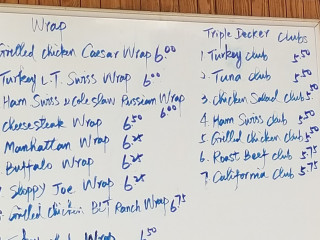 Wrap
Grilled chicken Caesar Wrap 6.00
Turkey L.T. Swiss Wrap 6.00
Ham Swiss & coleslaw Russian Wrap 6.00
cheesesteak Wrap 6.50
Manhattan Wrap 6.25
Buffalo Wrap 6.25
Sloppy Joe Wrap 6.25
Grilled chicken BLT Ranch Wrap 6.75
Wrap 6.50
Triple Decker clubs
1 Turkey club 5.50
2. Tuna club 5.50
3. Chicken Salad club 5.50
4. Ham Swiss club 5.50
5. Grilled chicken club 5.50
6. Roast Beef club 5.75
7 California club 5.75